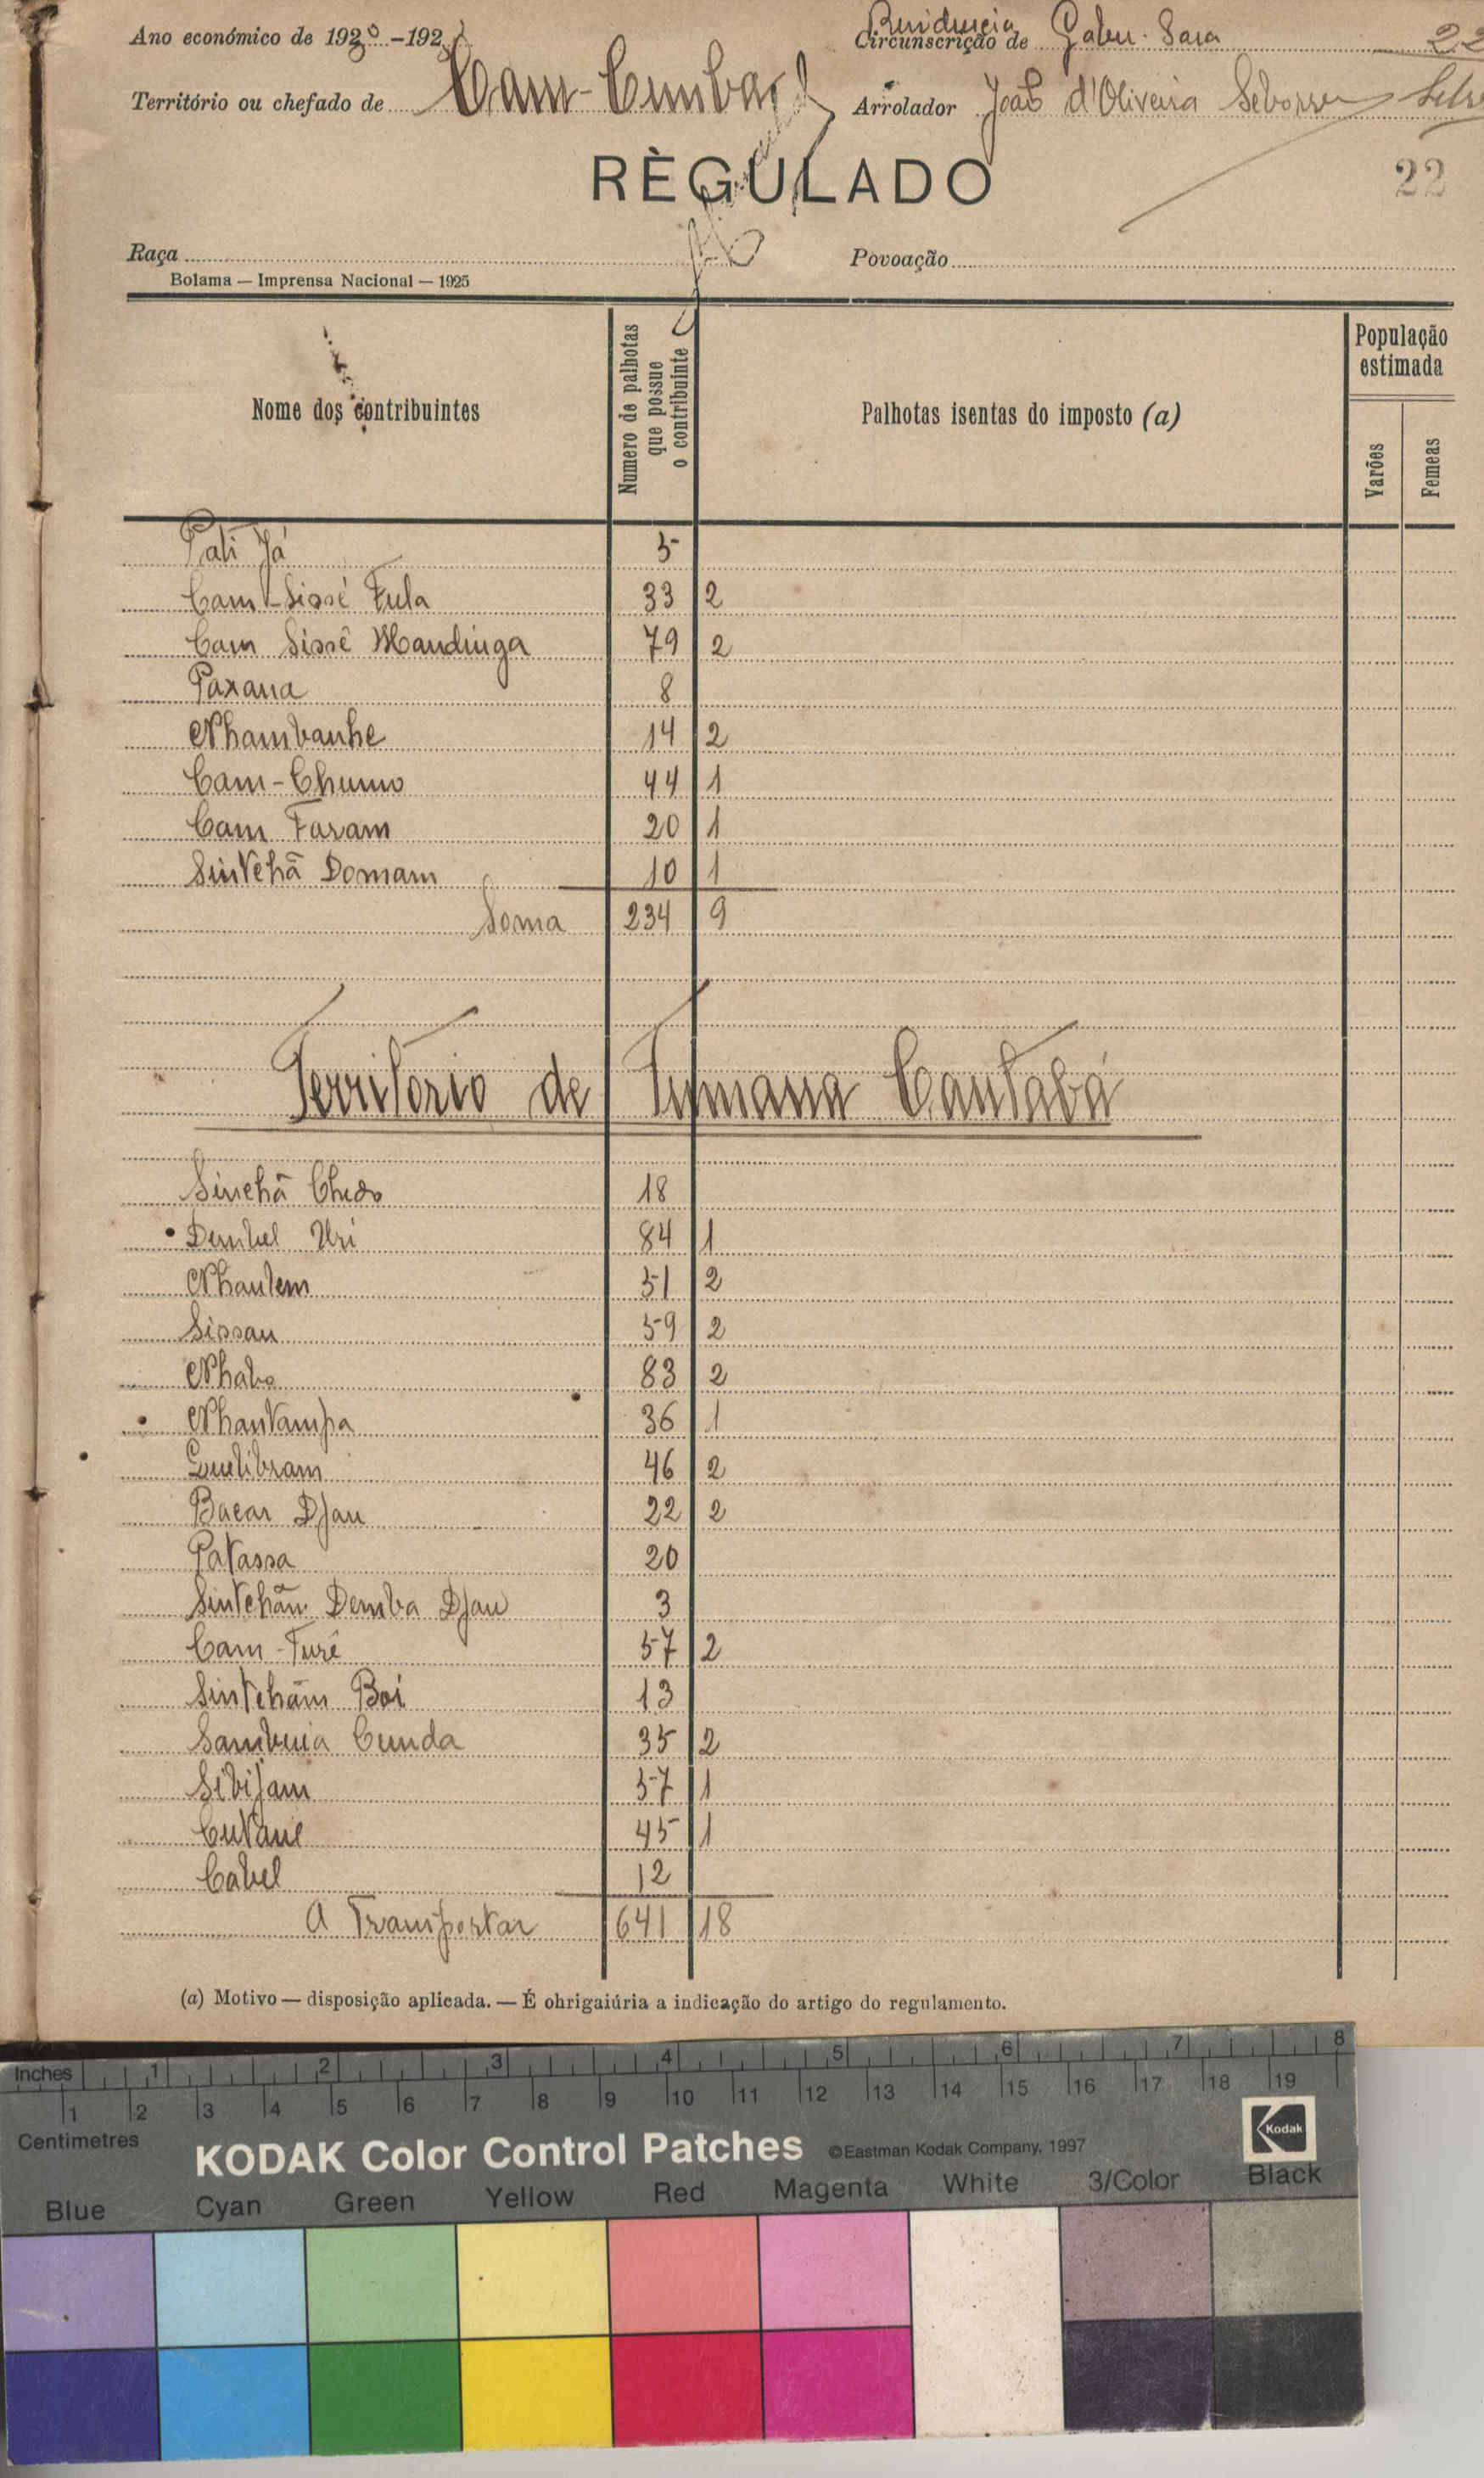 Ano económico de 1930-193
Residencia
Circunscrição de Gabu-Sara 22
Território ou chefado de Cam-Cumba Arrolador João d'Oliveira
RÈGULADO
22
Raça Povoação
Bolama — Imprensa Nacional — 1925
Nome dos contribuintes
Numero de palhotas que possue o contribuinte
Palhotas isentas do imposto (a)
População estimada
Varões
Femeas
Pati Já 5
Cam-Sissé Fula 33 2
Cam Sissê Mandinga 79 2
Paxana 8
Nhambanhe 14 2
Cam-Chumo 44 1
Cam Faram 20 1
Sintchã Domam 10 1
Soma 234 9
Territorio de Tumana Cantabá
Sinchã Chedo 18
Dembel Uri 84 1
Nhantem 51 2
Sissau 59 2
Nhabo 83 2
Nhantampa 36 1
Guelibram 46 2
Bacar Djau 22 2
Patassa 20
Sintchãn Demba Djau 3
Cam-Turê 57 2
Sintchãm Boi 13
Sambuia Cunda 35 2
Sibijam 57 1
Cutane 45 1
Cabel 12
A Transportar 641 18
(a) Motivo — disposição aplicada. — É ohrigaiúria a indicação do artigo do regulamento.
Inches 1 2 3 4 5 6 7 8
1 2 3 4 5 6 7 8 9 10 11 12 13 14 15 16 17 18 19
Centimetres
KODAK Color Control Patches ©Eastman Kodak Company, 1997 Kodak
Blue Cyan Green Yellow Red Magenta White 3/Color Black